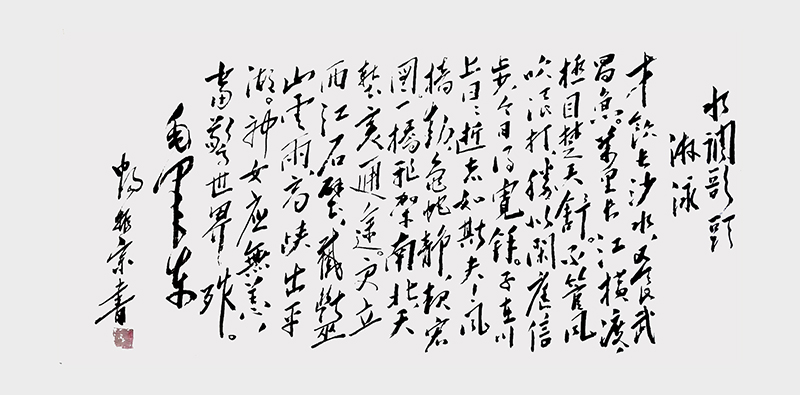 水調歌頭
游泳
才飲長沙水,又食武
昌魚。萬里長江橫渡,
極目楚天舒。不管風
吹浪打,勝似閑庭信
步,今日得寬餘。子在川
上曰:逝者如斯夫!風
檣動,龜蛇靜,起宏
圖。一橋飛架南北,天
塹變通途。更立
西江石壁,截斷巫
山雲雨,高峽出平
湖。神女應無恙,
當驚世界殊。
毛澤東
宗書